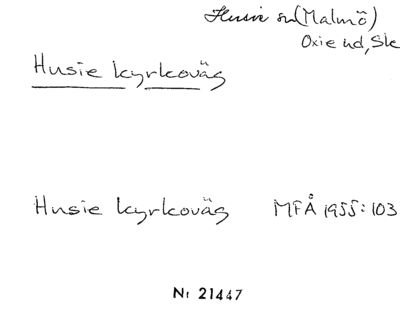 Husie sn (Malmö)
Oxie hd, Sk
Husie kyrkoväg
Husie kyrkoväg MFÅ 1955:103
Nr 21447